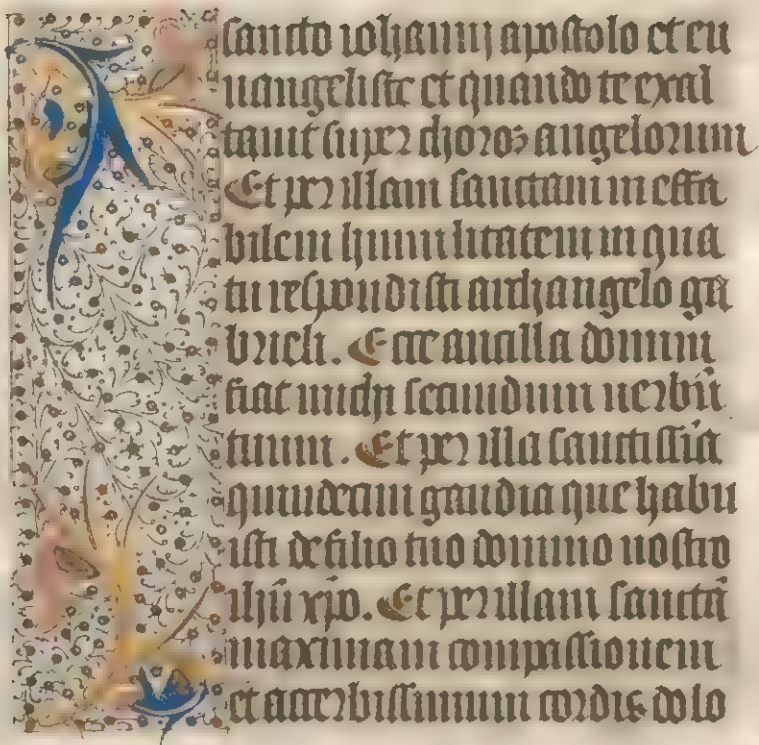 sancto iohanni apostolo et eu
uangeliste et quando te exal
tauit super choros angelorum
Et per illam sanctam ineffa
bilem humilitatem in qua
tu respondisti archangelo ga
brieli. Ecce ancilla domini
fiat michi secundum uerbū
tuum. Et per illa sanctissīa
quindecim gaudia que habu
isti de filio tuo domino nostro
ihū xp̄o. Et per illam sanctā
maximam compassionem
et acerbissimum cordis dolo